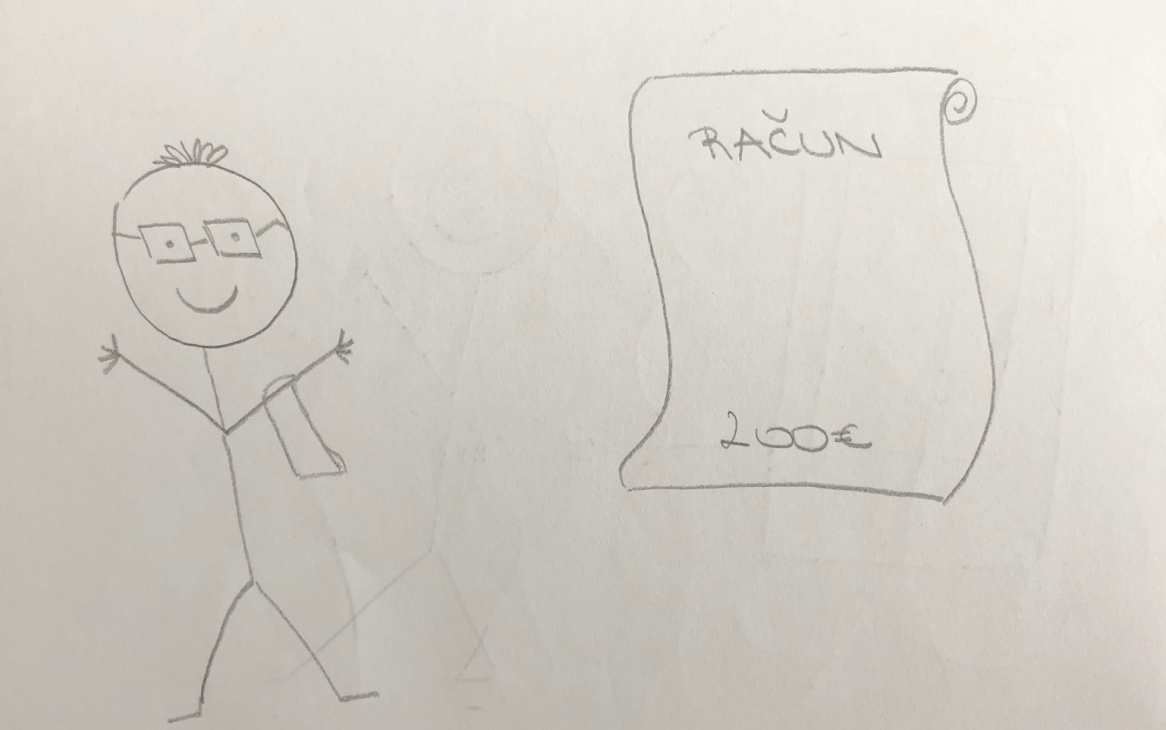 RAČUN
200€